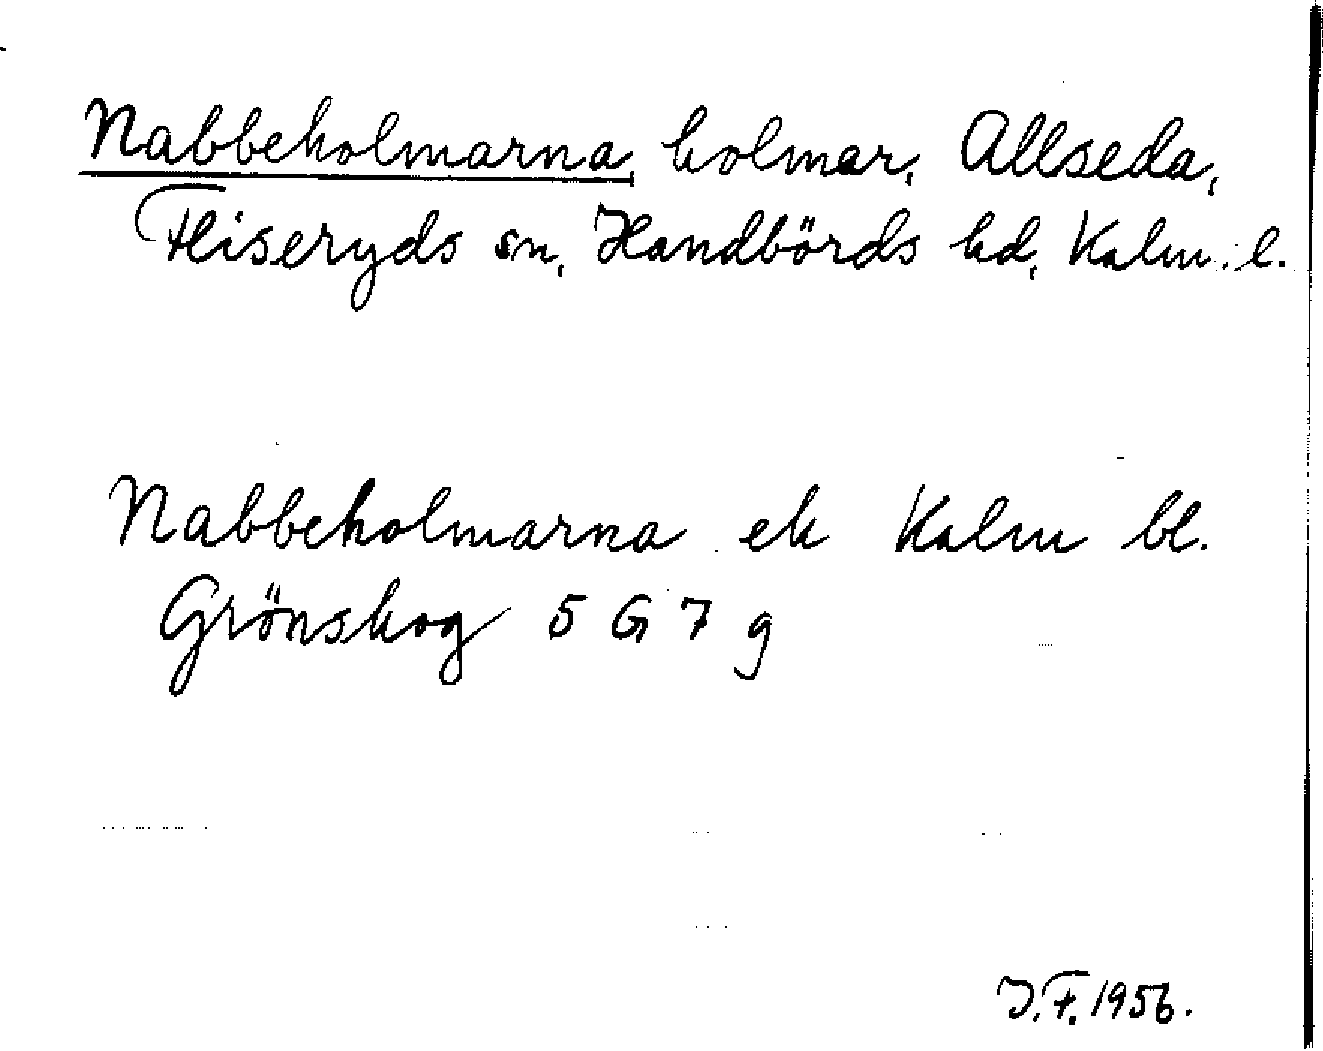 Nabbeholmarna, holmar, Allseda,
Fliseryds sn, Handbörds hd, Kalm. l.
Nabbeholmarna ek Kalm bl.
Grönskog 5 G 7 g
J.F. 1956.